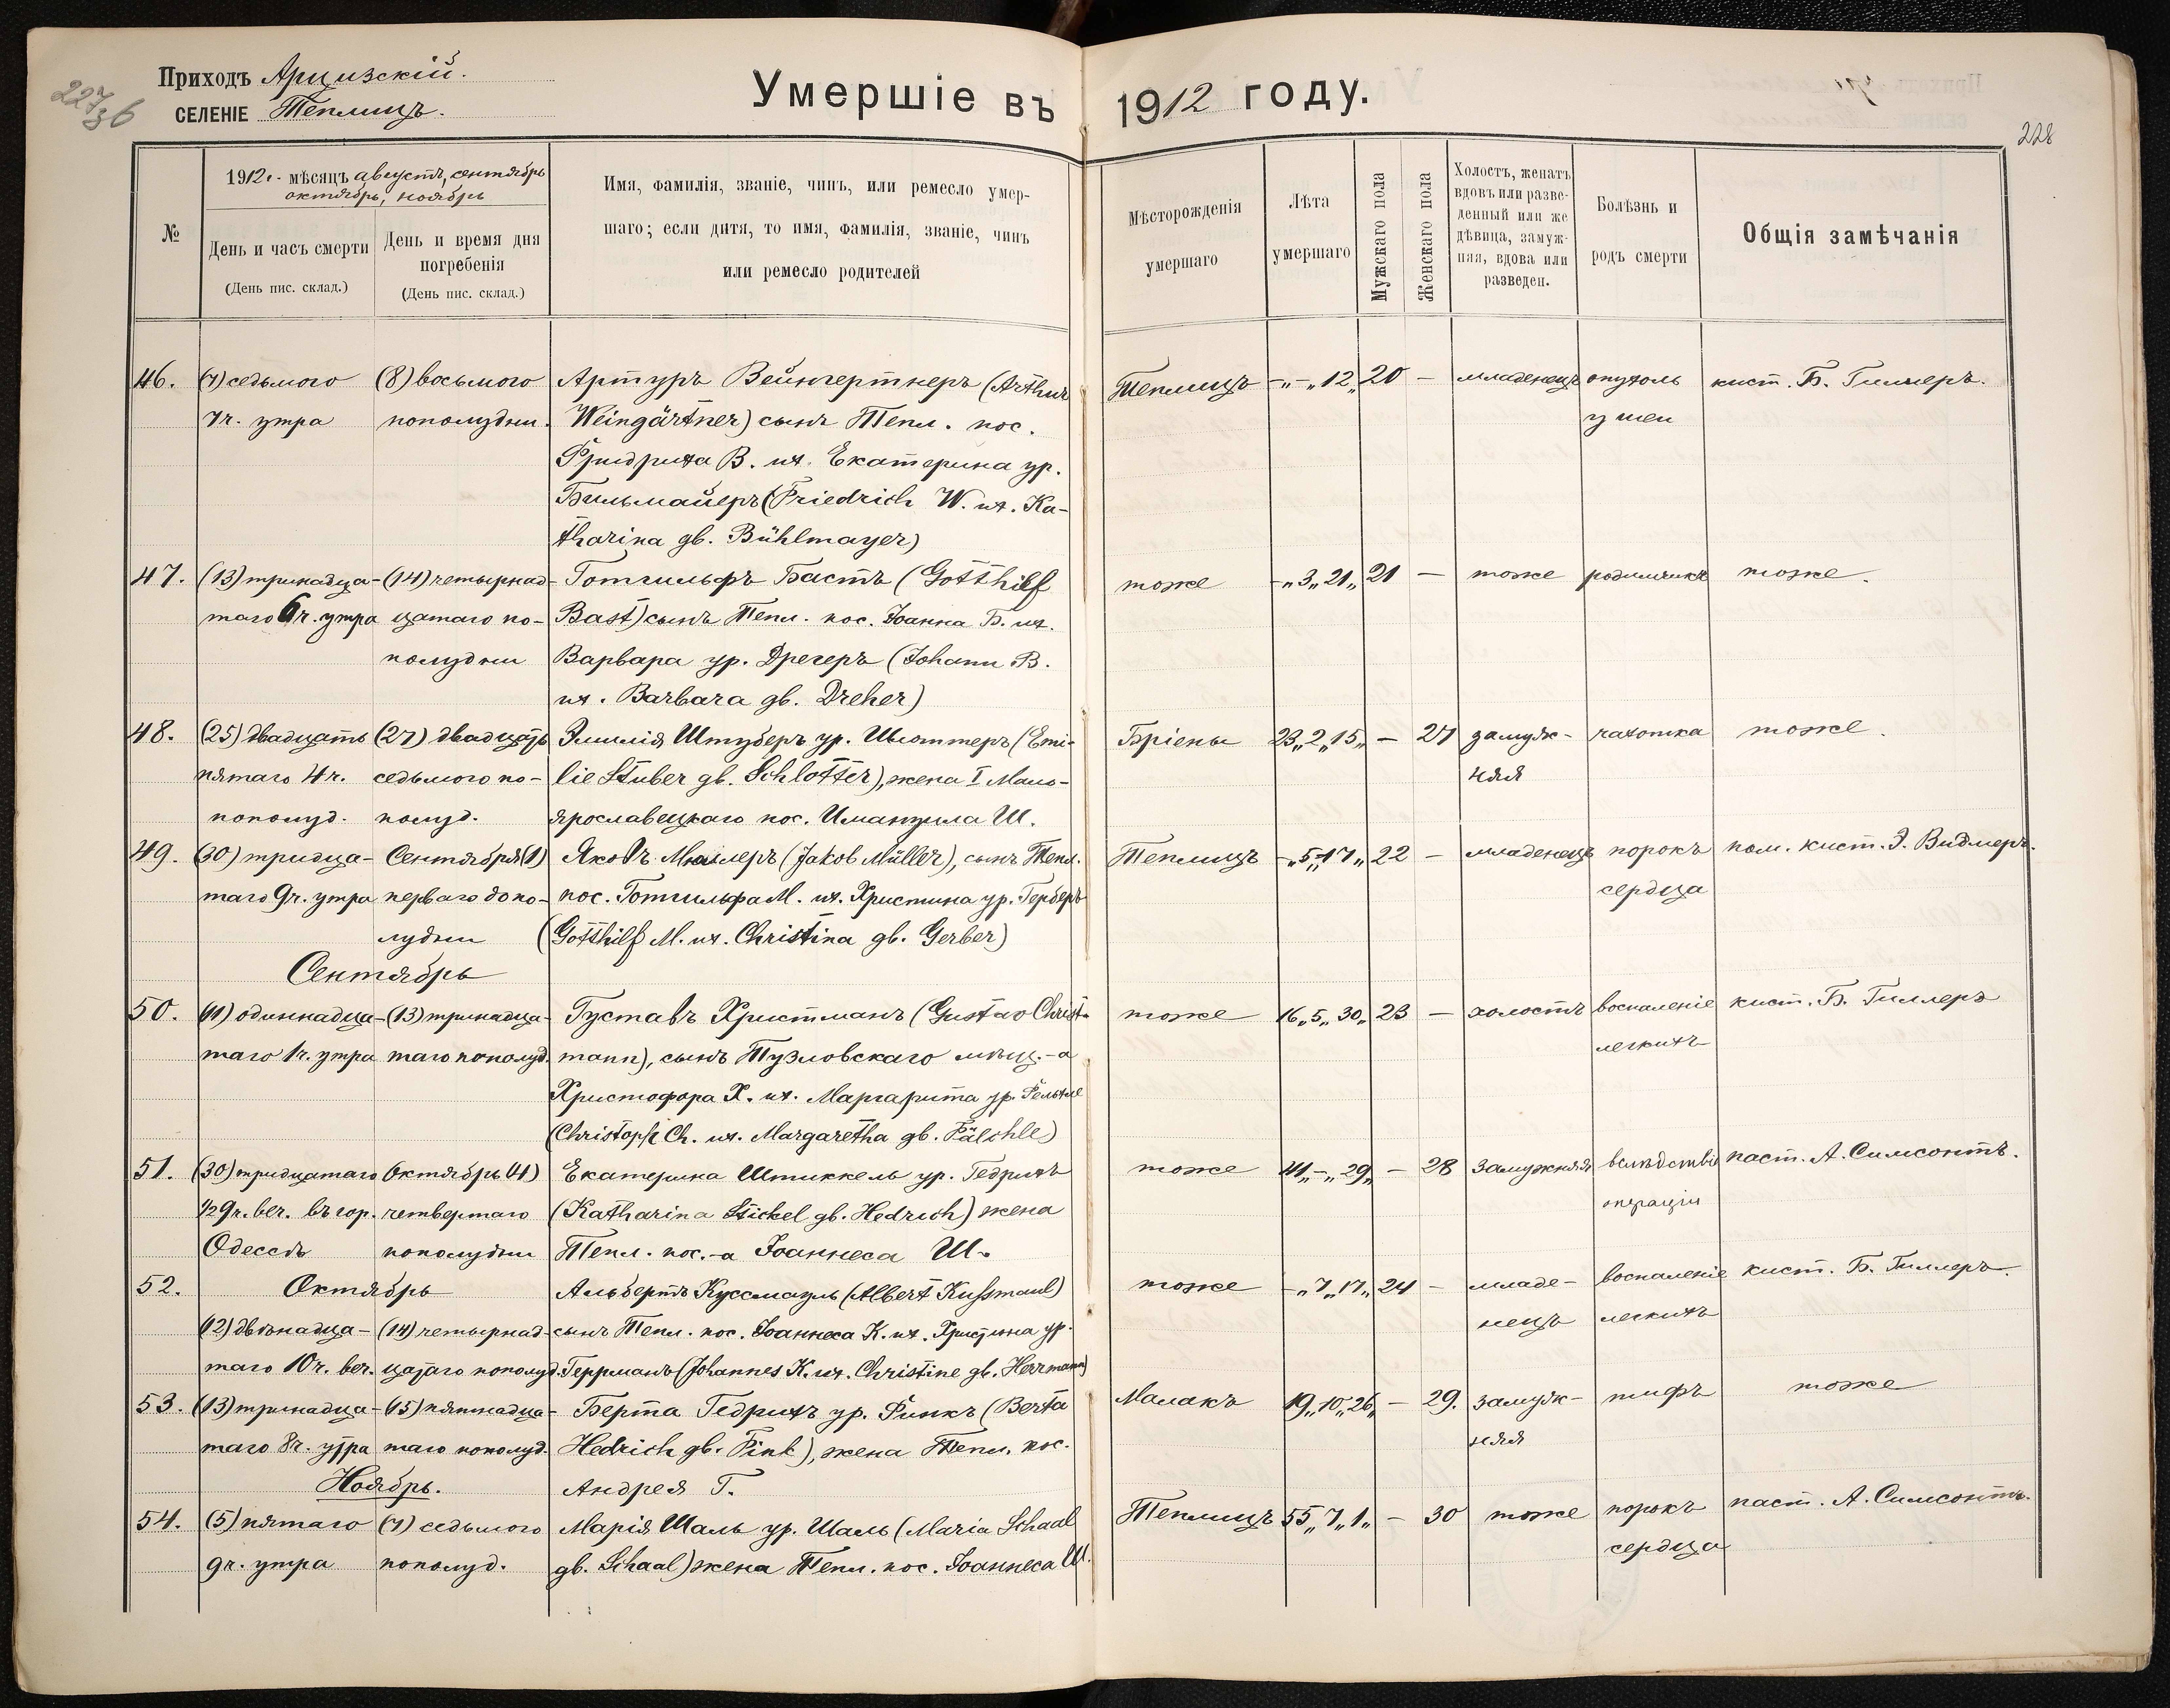 227
36
Приходъ Арцизскій.
СЕЛЕНІЕ Теплицъ.
Умершіе въ 1912 году.
228
№
1912 г. мѣсяцъ августъ, сентябрь
октябрь, ноябрь
День и часъ смерти
(День пис. склад.)
День и время дня
погребенія
(День пис. склад.)
Имя, фамилія, званіе, чинъ, или ремесло умер-
шаго; если дитя, то имя, фамилія, званіе, чинъ
или ремесло родителей
Мѣсторожденія
умершаго
Лѣта
умершаго
Мужскаго пола
Женскаго пола
Холостъ, женатъ
вдовъ или разве-
денный или же
дѣвица, замуж-
няя, вдова или
разведен.
Болѣзнь и
родъ смерти
Общія замѣчанія
46. (7) седьмого (8) восьмого Артуръ Вейнгертнеръ (Arthur Теплицъ -„-„12„ 20 - младенецъ опухоль кист. Б. Гиллеръ.
7 ч. утра пополудни. Weingärtner) сынъ Тепл. пос. у шеи
Фридриха В. их. Екатерина ур.
Бильмайеръ (Friedrich W. их. Ka-
tharina gb. Bühlmayer)
47. (13) тринадца- (14) четырнад- Готгильфъ Бастъ (Gotthilf тоже -„3„21„ 21 - тоже родимчикъ тоже.
таго 6 ч. утра цатаго по- Bast) сынъ Тепл. пос. Іоанна Б. их.
полудни Варвара ур. Дрегеръ (Johann B.
их. Barbara gb. Dreher)
48. (25) двадцать (27) двадцать Эмилія Штуберъ ур. Шлоттеръ (Emi- Бріены 23„2„15„ - 27 замуж- чахотка тоже.
пятаго 4 ч. седьмого по- lie Stuber gb. Schlotter), жена I Мало- няя
пополуд. полуд. ярославецкаго пос. Имануила Ш.
49. (30) тридца- Сентября (1) Яковъ Мюллеръ (Jakob Müller), сынъ Тепл. Теплицъ -„5„17„ 22 - младенецъ порокъ пом. кист. Э. Видмеръ.
таго 9 ч. утра перваго допо- пос. Готгильфа М. их. Христина ур. Герберъ сердца
лудни (Gotthilf M. их. Christina gb. Gerber)
Сентябрь
50. (11) одиннадца- (13) тринадца- Густавъ Христманъ (Gustav Christ- тоже 16„5„30„ 23 - холостъ воспаленіе кист. Б. Гиллеръ
таго 1 ч. утра таго пополуд. mann), сынъ Тузловскаго мѣщ.-а легкихъ
Христофора Х. их. Маргарита ур. Фельхле
(Christoph Ch. их. Margaretha gb. Fälchle)
51. (30) тридцатаго Октябрь (4) Екатерина Штиккель ур. Гедрихъ тоже 41„-„29„ - 28 замужняя вслѣдствіе паст. А. Симсонтъ.
½ 9 ч. веч. въ гор. четвертаго (Katharina Stickel gb. Hedrich) жена операціи
Одессѣ пополудни Тепл. пос.-а Іоаннеса Ш.
52. Октябрь Альбертъ Куссмауль (Albert Kußmaul) тоже -„7„17„ 24 - младе- воспаленіе кист. Б. Гиллеръ.
(12) двѣнадца- (14) четырнад- сынъ Тепл. пос. Іоаннеса К. их. Христина ур. нецъ легкихъ
таго 10 ч. веч. цатаго пополуд. Геррманъ (Johannes K. их. Christine gb. Herrmann)
53. (13) тринадца- (15) пятнадца- Берта Гедрихъ ур. Финкъ (Berta Малакъ 19„10„26„ - 29. замуж- тифъ тоже
таго 8 ч. утра таго пополуд. Hedrich gb. Fink), жена Тепл. пос. няя
Ноябрь. Андрея Г.
54. (5) пятаго (7) седьмого Марія Шаль ур. Шаль (Maria Schaal Теплицъ 55„7„1„ - 30 тоже порокъ паст. А. Симсонтъ.
9 ч. утра пополуд. gb. Schaal) жена Тепл. пос. Іоаннеса Ш. сердца